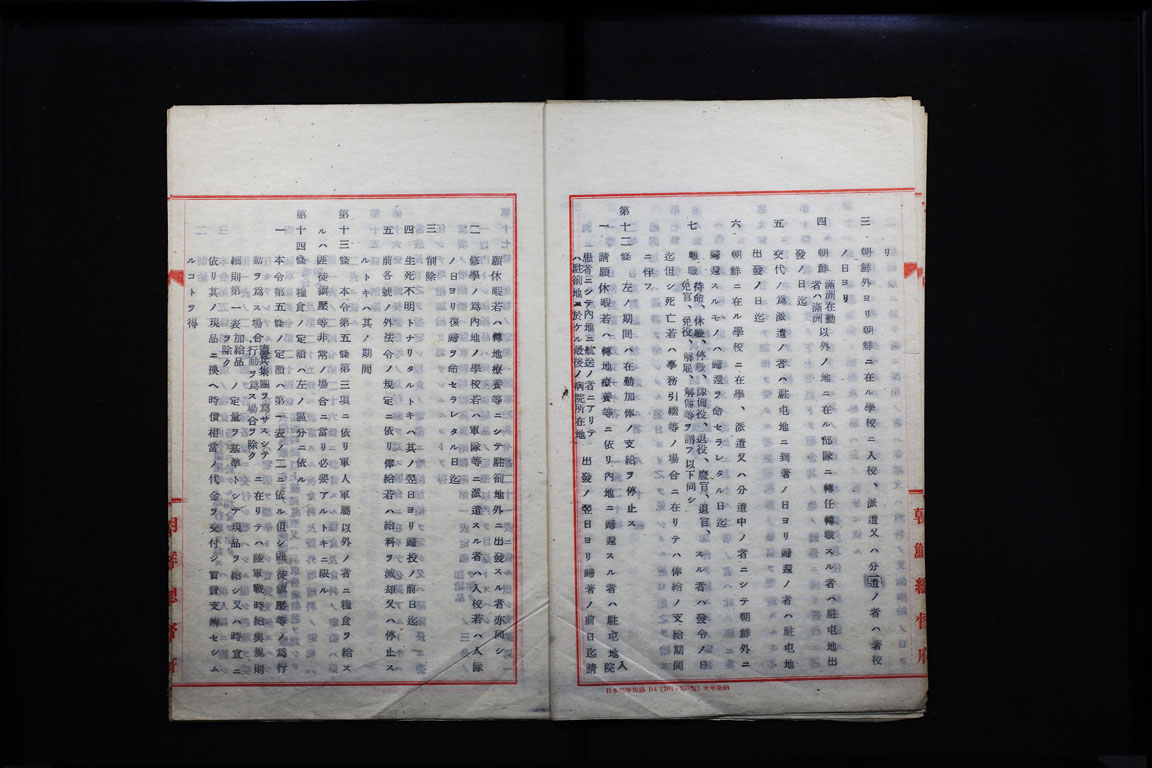 リ
三 朝鮮外ヨリ朝鮮ニ在ル學校ニ入校、派遣又ハ分遣ノ者ハ著校
ノ日ヨリ
四 朝鮮(滿洲在勤者ハ滿洲)以外ノ地ニ在ル部隊ニ轉任轉職スル者ハ駐屯地出
發ノ日迄
五 交代ノ爲派遣ノ者ハ駐屯地ニ到著ノ日ヨリ歸還ノ者ハ駐屯地
出發ノ日迄
六 朝鮮ニ在ル學校ニ在學、派遣又ハ分遣中ノ者ニシテ朝鮮外ニ
歸還スルモノハ歸還ヲ命セラレタル日迄
七 離職(待命、休職、停職、豫備役、退役、廢官、退官、免官、免役、解雇、解傭等ヲ謂フ以下同シ)スル者ハ發令ノ日
迄但シ死亡若ハ事務引繼等ノ場合ニ在リテハ俸給ノ支給期間
ニ伴フ
第十二條 左ノ期間ハ在勤加俸ノ支給ヲ停止ス
一 請願休暇若ハ轉地療養等ニ依リ內地ニ歸還スル者ハ駐屯地(入院患者ニシテ內地ニ航送ノ者ニアリテハ駐箚地ニ於ケル最後ノ病院所在地)出發ノ翌日ヨリ歸著ノ前日迄請
願休暇若ハ轉地療養等ニシテ駐箚地外ニ出發スル者亦同シ
二 修學ノ爲內地ノ學校若ハ軍隊等ニ派遣スル者ハ入校若ハ入隊
ノ日ヨリ復歸ヲ命セラレタル日迄
三 削除
四 生死不明トナリタルトキハ其ノ翌日ヨリ歸投ノ前日迄
五 前各號ノ外法令ノ規定ニ依リ俸給若ハ給料ヲ減却又ハ停止ス
ルトキハ其ノ期間
第十三條 本令第五條第三項ニ依リ軍人軍屬以外ノ者ニ糧食ヲ給ス
ルハ匪徒鎭壓等非常ノ場合ニ當リ必要アルトキニ限ル
第十四條 糧食ノ定額ハ左ノ區分ニ依ル
一 本令第五條ノ定額ハ第一表ノ二ニ依ル但シ匪徒鎭壓等ノ爲行
動ヲ爲ス場合(憲兵集團ヲ爲サスシテ行動ヲ爲ス場合ヲ除ク)ニ在リテハ陸軍戰時給與規則
細則第一表(加給品ヲ除ク)ノ定量ヲ基準トシテ現品ヲ給シ又ハ時宜ニ
依リ其ノ現品ニ換ヘ時價相當ノ代金ヲ交付シ買賣支辨セシム
ルコトヲ得
朝鮮總督府
朝鮮總督府